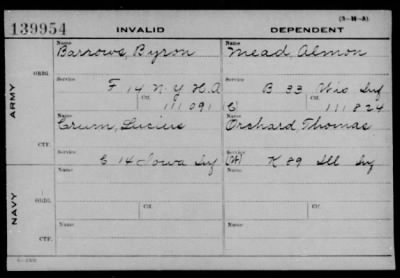 (3-M-A)
139954 INVALID DEPENDENT
Name Name
Barrows, Byron Mead, Almon
ARMY
ORIG.
Service Service
F 14 N Y H A B 33 Wis Inf
Ctf. Ctf.
111091 C 111824
Name Name
Crum, Lucius Orchard, Thomas
CTF.
Service Service
C 14 Iowa Inf K 89 Ill Inf
NAVY
Name Name
ORIG.
Ctf. Ctf.
Name Name
CTF.